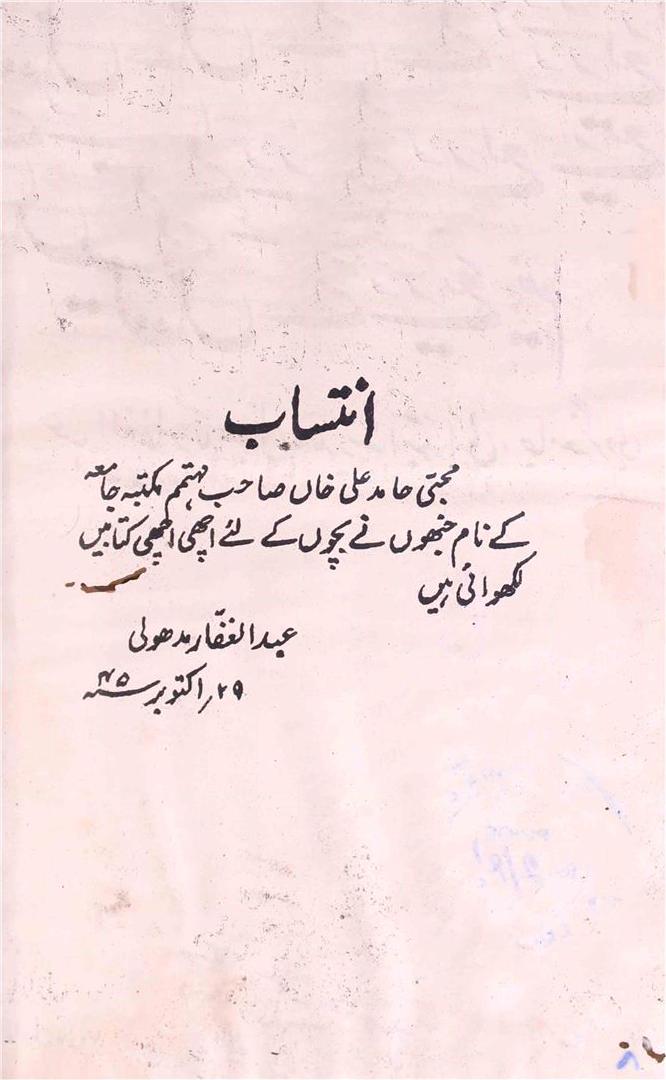 انتساب
محبّی حامد علی خاں صاحب مہتمم مکتبہ جامعہ
کے نام جنھوں نے بچوں کے لئے اچھی اچھی کتابیں
لکھوائی ہیں
عبدالغفّار مدھولی
۲۹؍ اکتوبر سنہ ۴۵